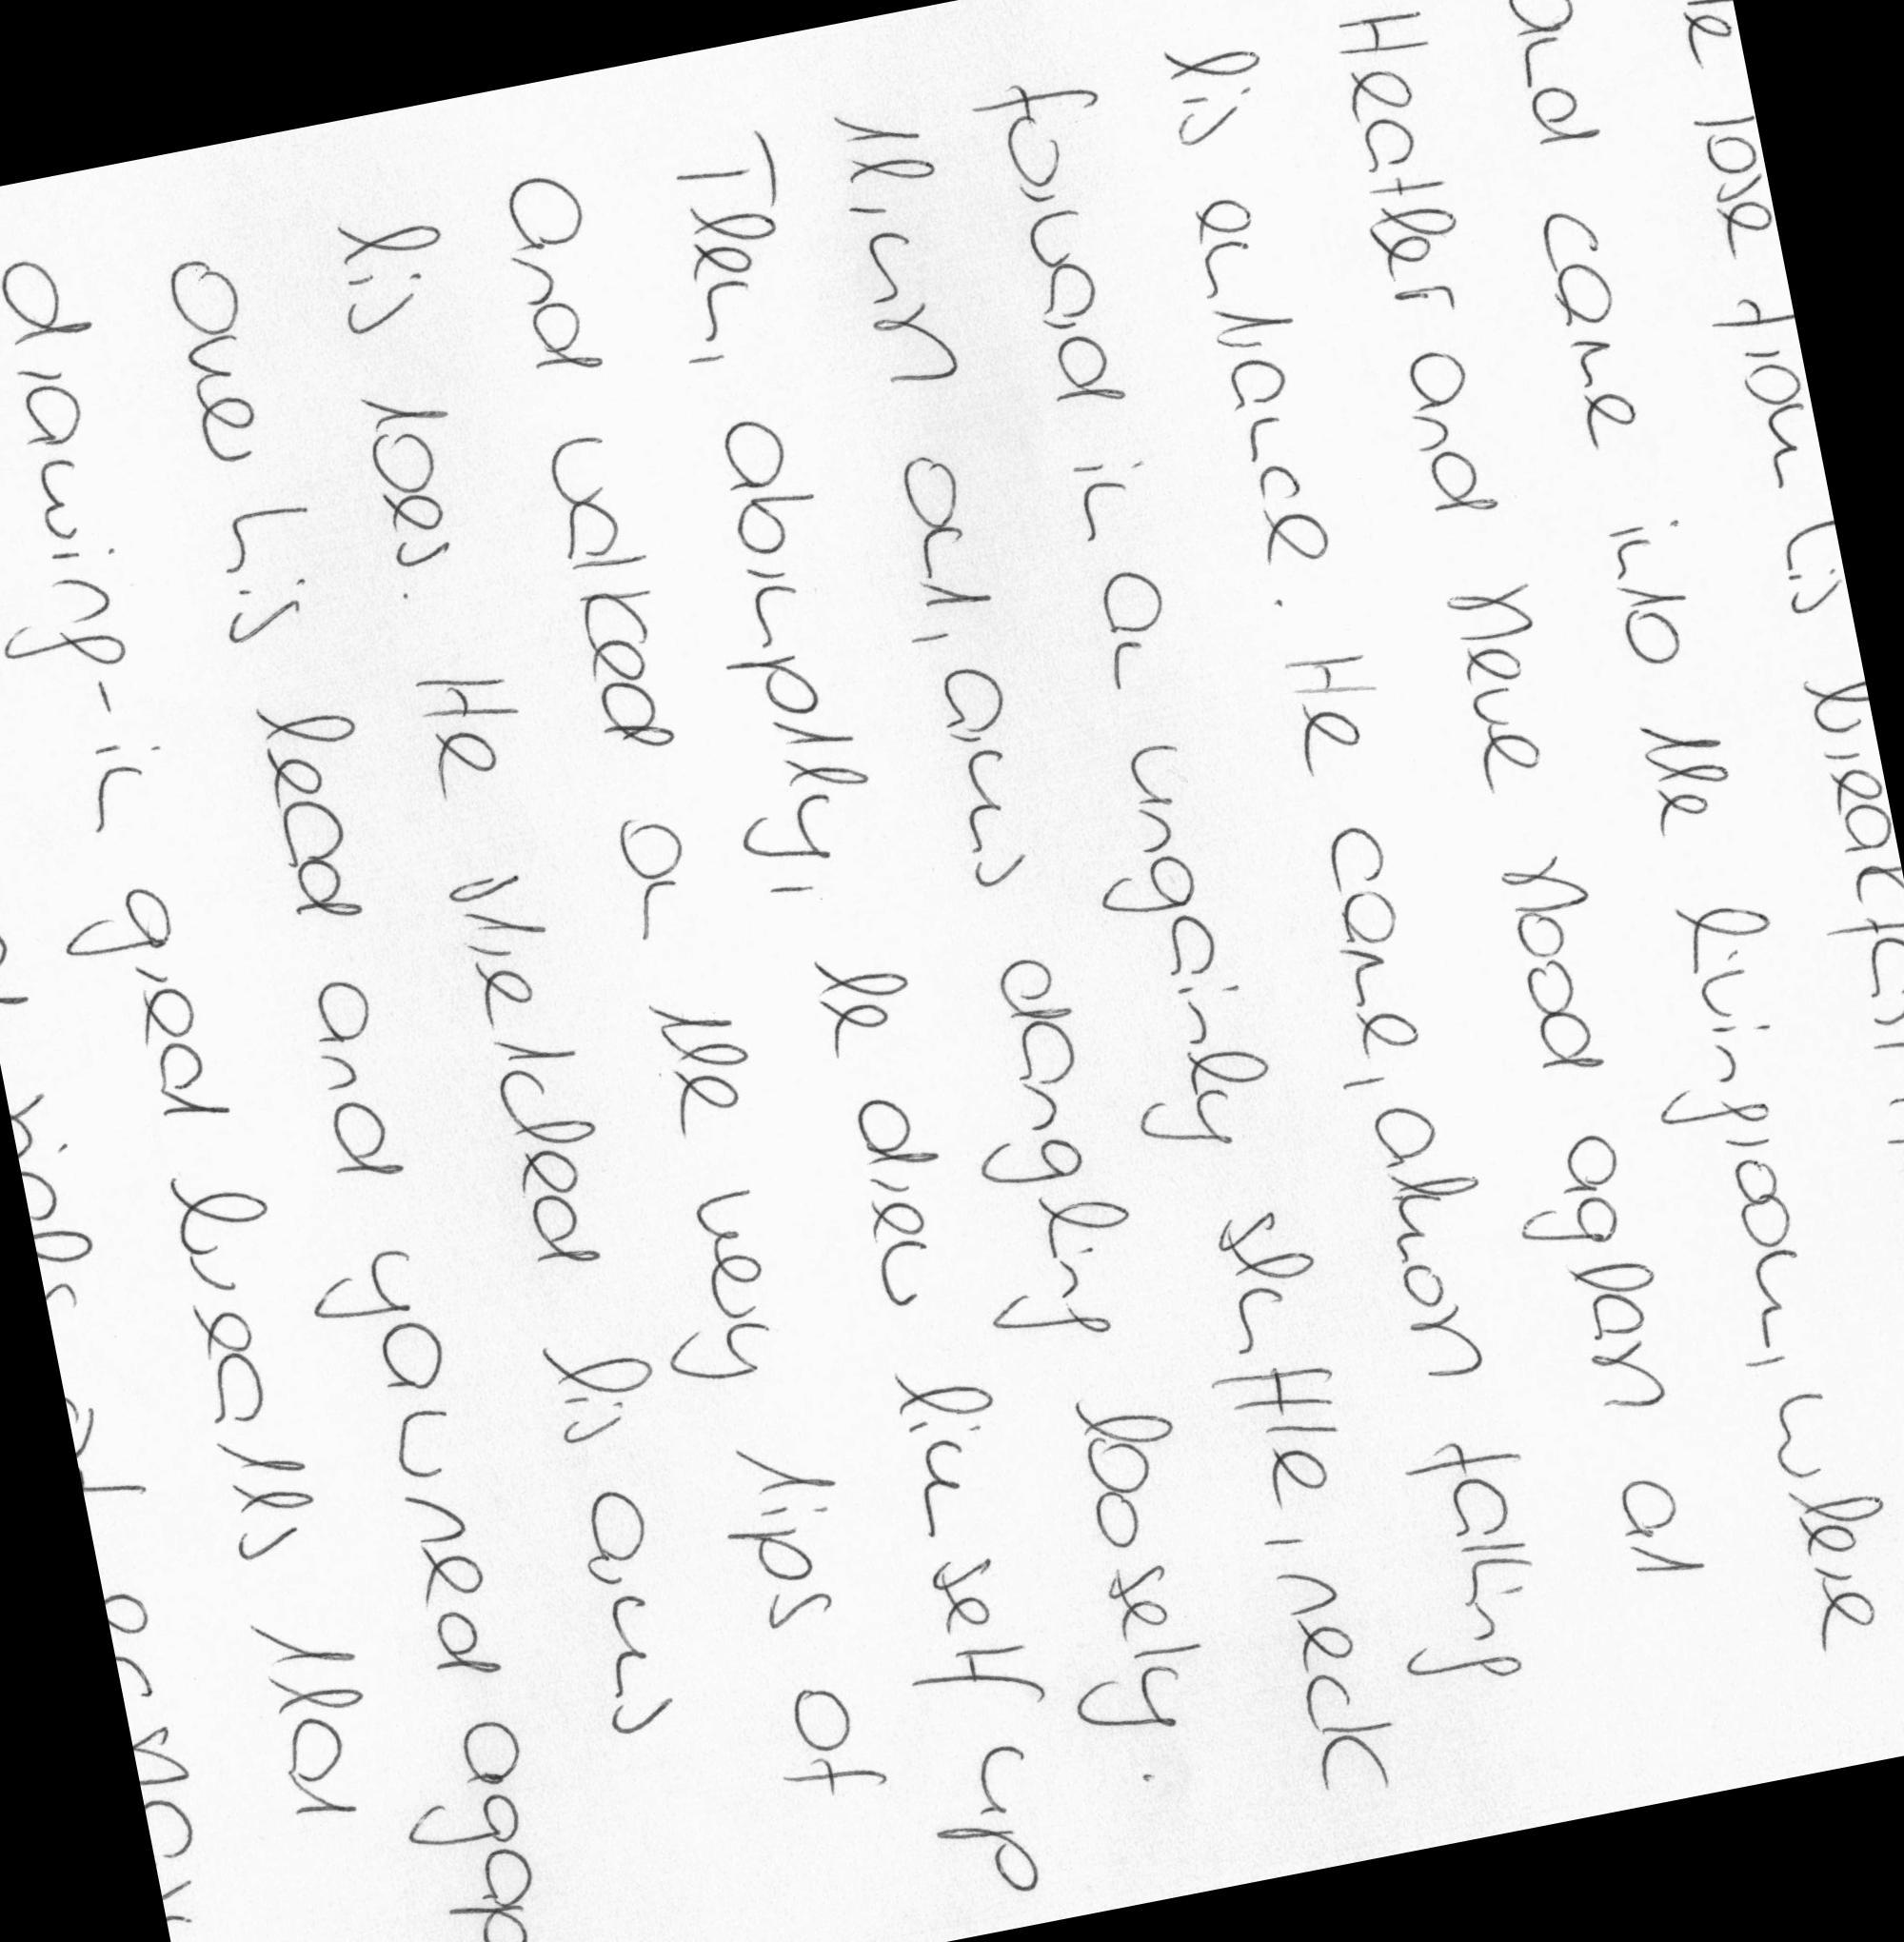 He rose from his breakfast
and came into the livingroom, where
Heather and Steve stood aghast at
his entrance. He came, almost falling
forward in an ungainly shuffle, neck
thin out, arms dangling loosely.
Then, abruptly, he drew himself up
and walked on the very tips of
his toes. He stretched his arms
over his head and yawned agap
drawing-in great breaths that